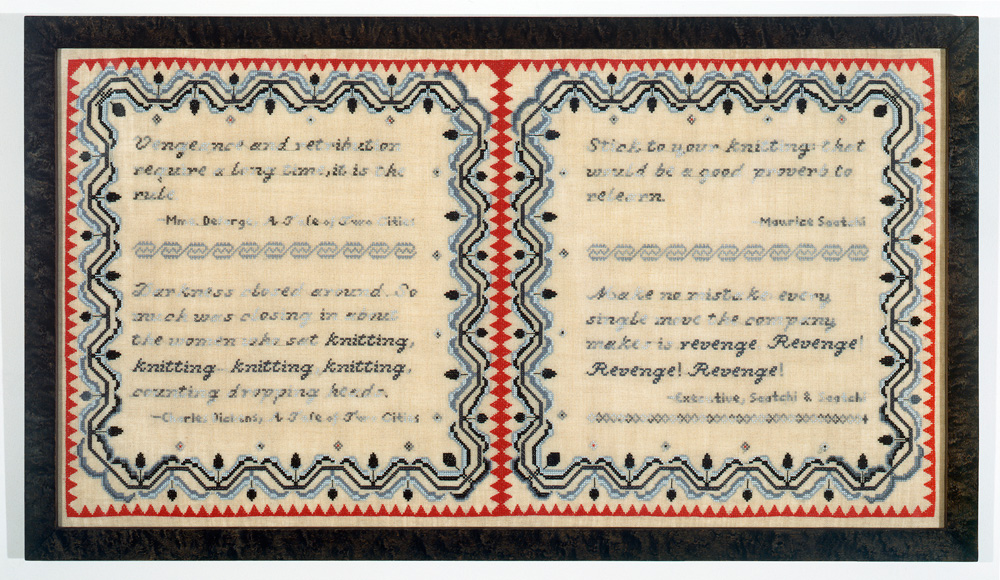 Vengeance and retribution
require a long time, it is the
rule
—Mme. Defarge, A Tale of Two Cities
Darkness closed around. So
much was closing in about
the women who sat knitting,
knitting knitting, knitting,
counting dropping heads.
—Charles Dickens, A Tale of Two Cities
Stick to your knitting: that
would be a good proverb to
relearn.
—Maurice Saatchi
Make no mistake every
single move the company
makes is revenge. Revenge!
Revenge! Revenge!
—Executive, Saatchi & Saatchi